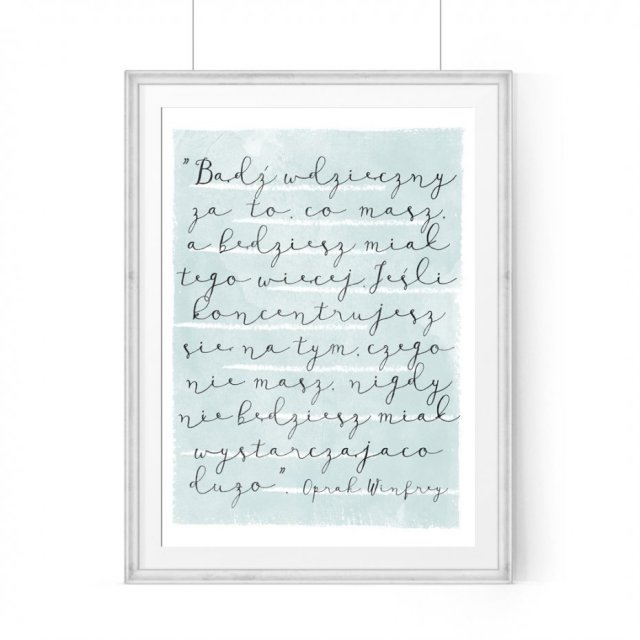 "Bądź wdzięczny
za to, co masz,
a będziesz miał
tego więcej. Jeśli
koncentrujesz
się na tym, czego
nie masz, nigdy
nie będziesz miał
wystarczajaco
duzo". Oprah Winfrey